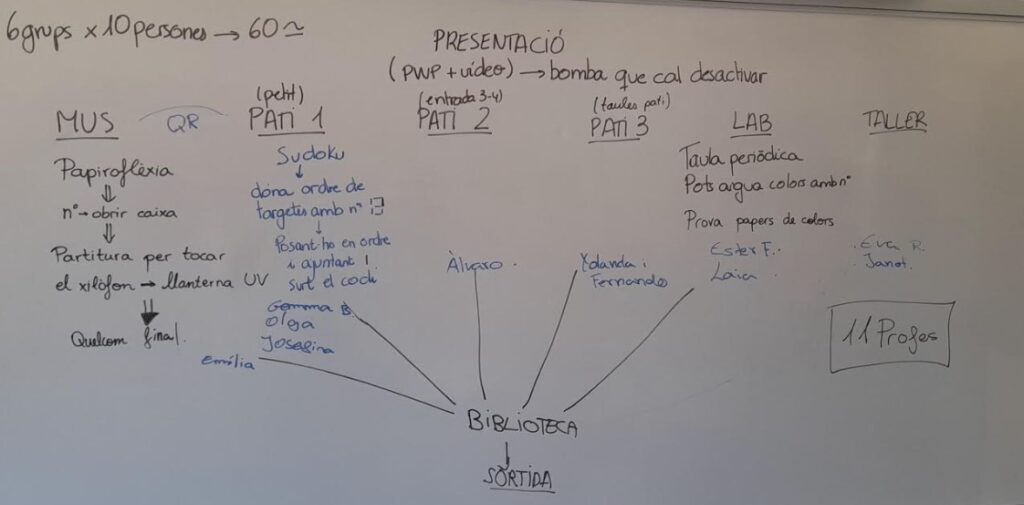 6 grups x 10 persones → 60 ≃
PRESENTACIÓ
(PWP + vídeo) → bomba que cal desactivar
MUS
QR
(petit)
PATI 1
(entrada 3-4)
PATI 2
(taules pati)
PATI 3
LAB
TALLER
Papiroflèxia
⇓
nº → obrir caixa
⇓
Partitura per tocar
el xilòfon → llanterna UV
⇓
Quelcom final.
Sudoku
↓
dóna ordre de
targetes amb nº
↓
Posant-ho en ordre
i ajuntant
surt el codi
Gemma B.
Olga
Josefina
Emília
Àlvaro.
Yolanda i
Fernando
Taula periòdica
Pots aigua colors amb nº
Prova papers de colors
Ester F.
Laia
Eva R.
Janet.
11 Profes
BIBLIOTECA
↓
SORTIDA